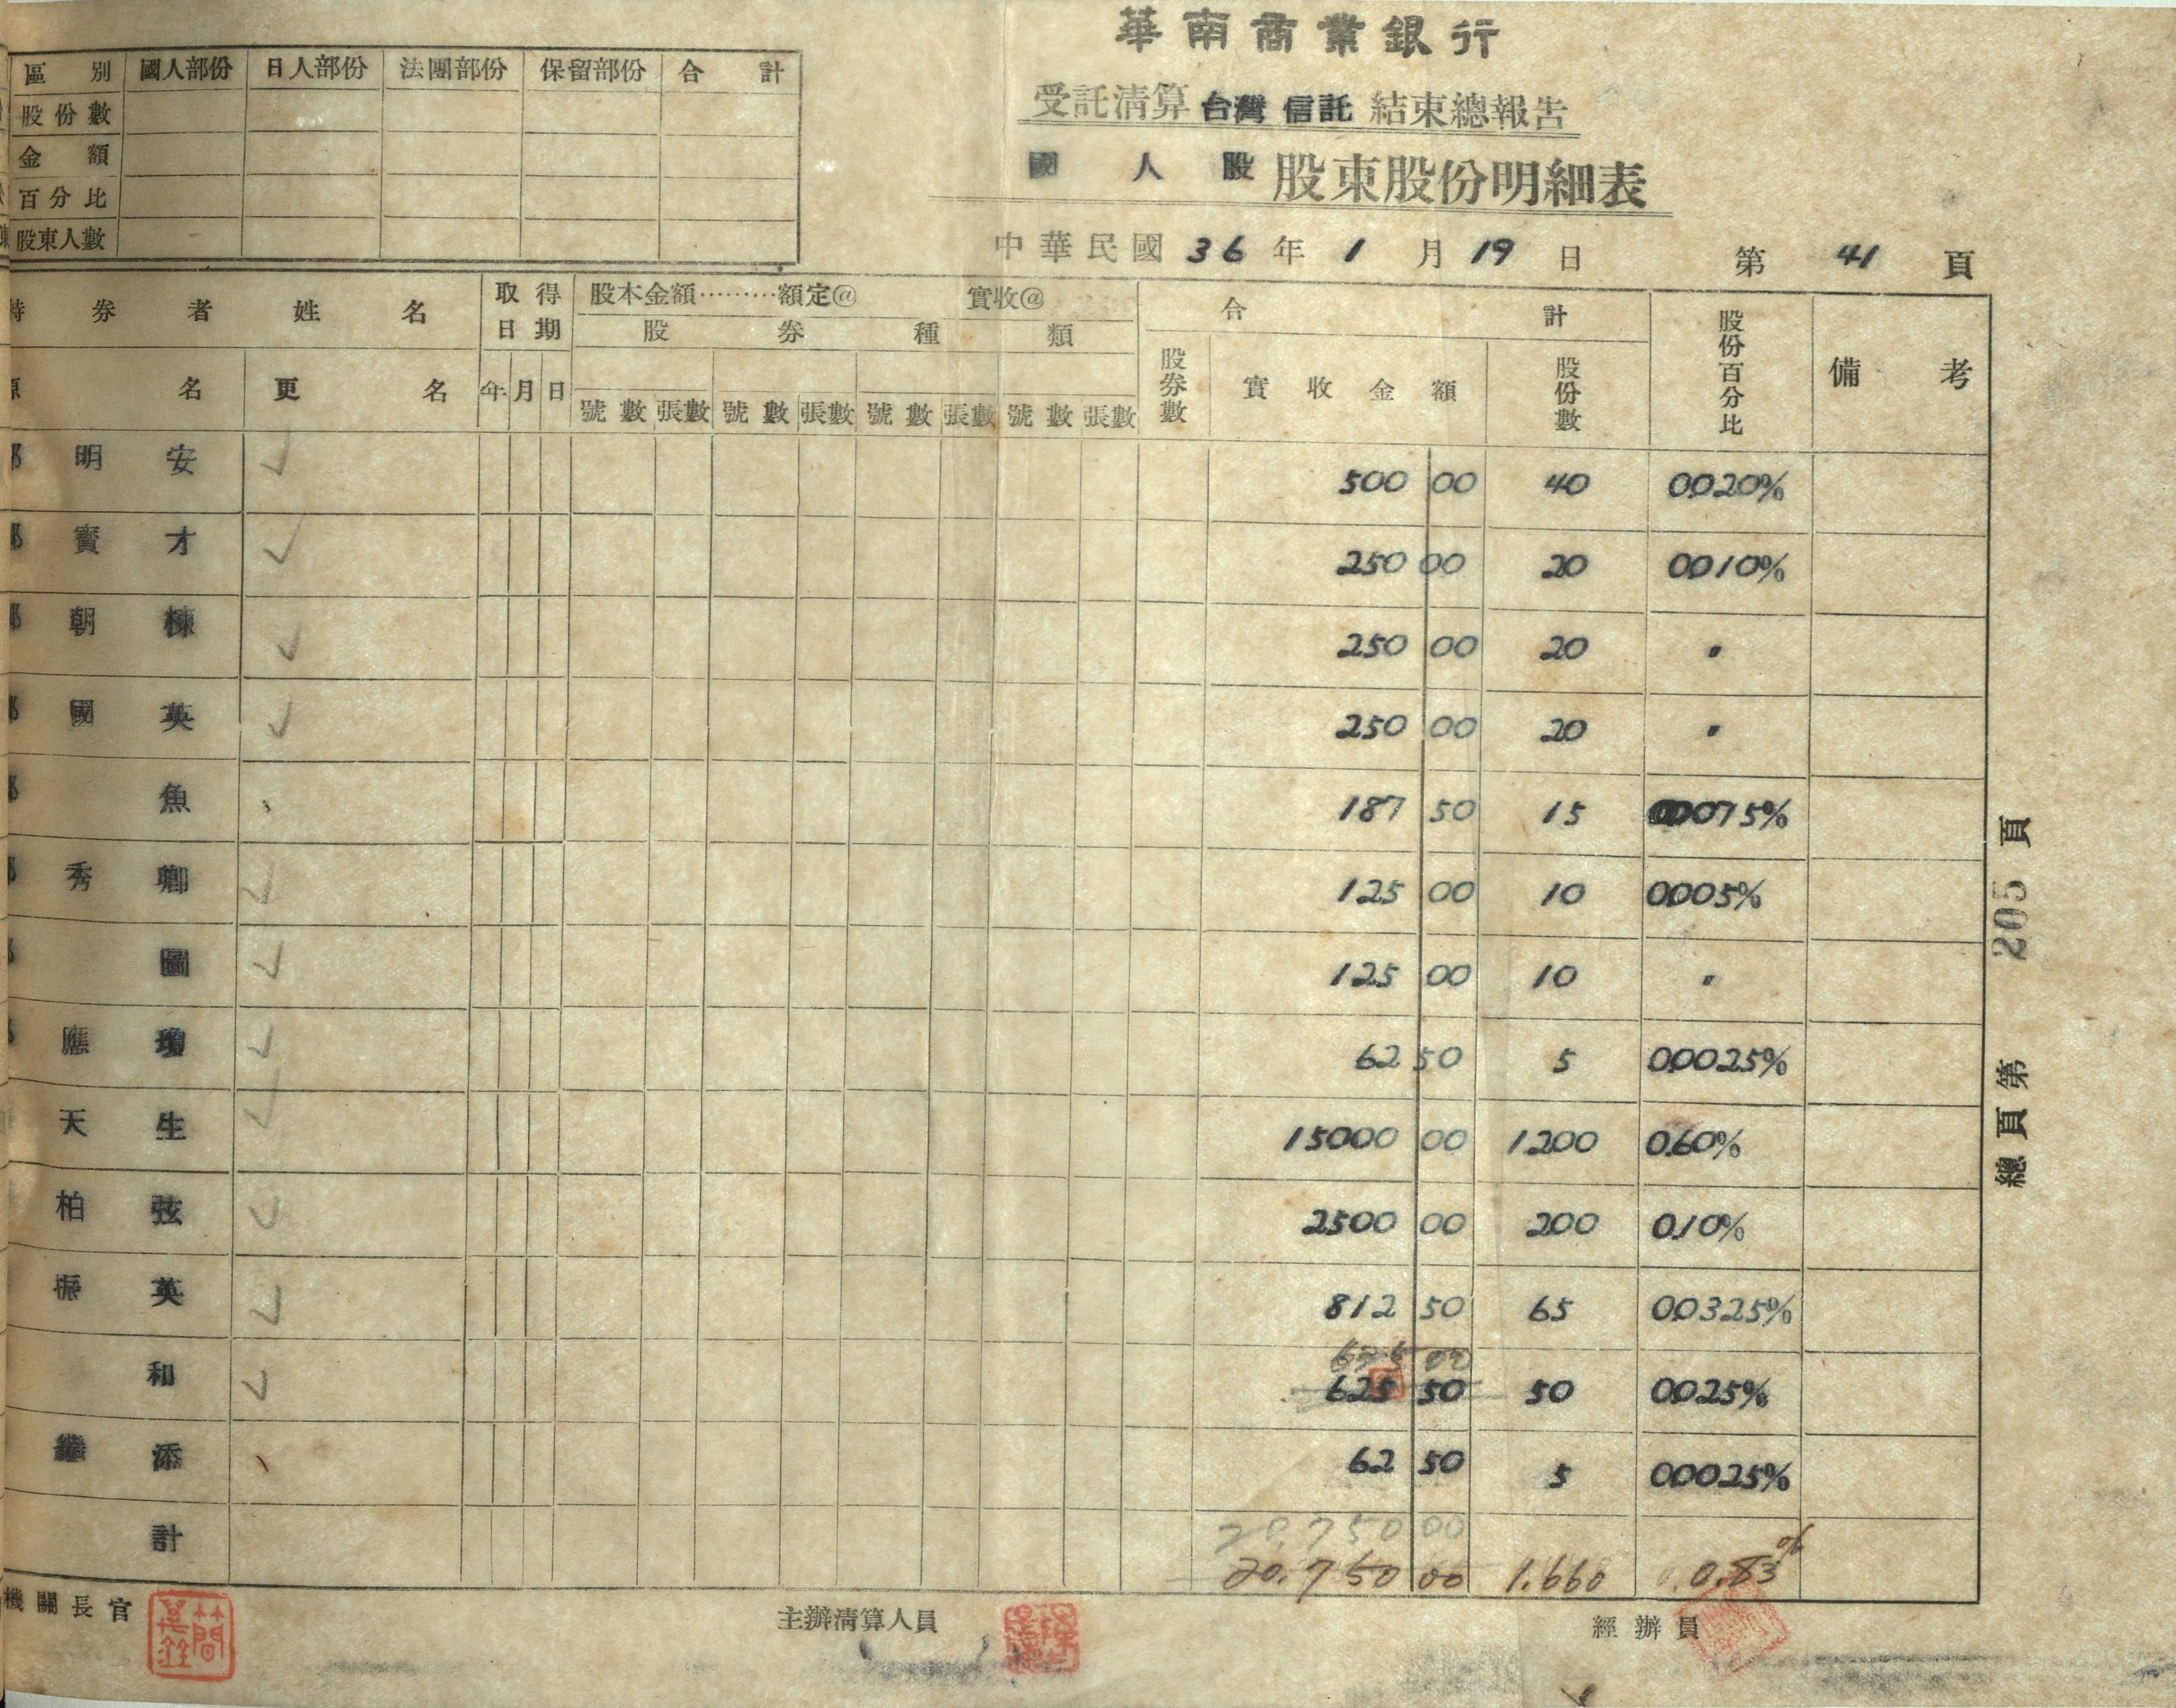 華南商業銀行
受託清算台灣信託結束總報告
國人股股東股份明細表
中華民國36年1月19日 第41頁
區別 國人部份 日人部份 法團部份 保留部份 合計
股份數
金額
百分比
股東人數
券者姓名 取得日期 股本金額………額定@ 實收@ 合計 股份百分比 備考
股券種類
名 更名 年 月 日 號數 張數 號數 張數 號數 張數 號數 張數 股券數 實收金額 股份數
明安 500 00 40 0.020%
寶才 250 00 20 0.010%
朝棟 250 00 20 〃
國英 250 00 20 〃
魚 187 50 15 0.0075%
秀卿 125 00 10 0.005%
圖 125 00 10 〃
應瓊 62 50 5 0.0025%
天生 15000 00 1200 0.60%
柏弦 2500 00 200 0.10%
振英 812 50 65 0.0325%
625 00
和 625 50 50 0.025%
繼添 62 50 5 0.0025%
20,750 00
計 20,750 00 1,660 0.83%
機關長官 主辦清算人員 經辦員
總頁第205頁